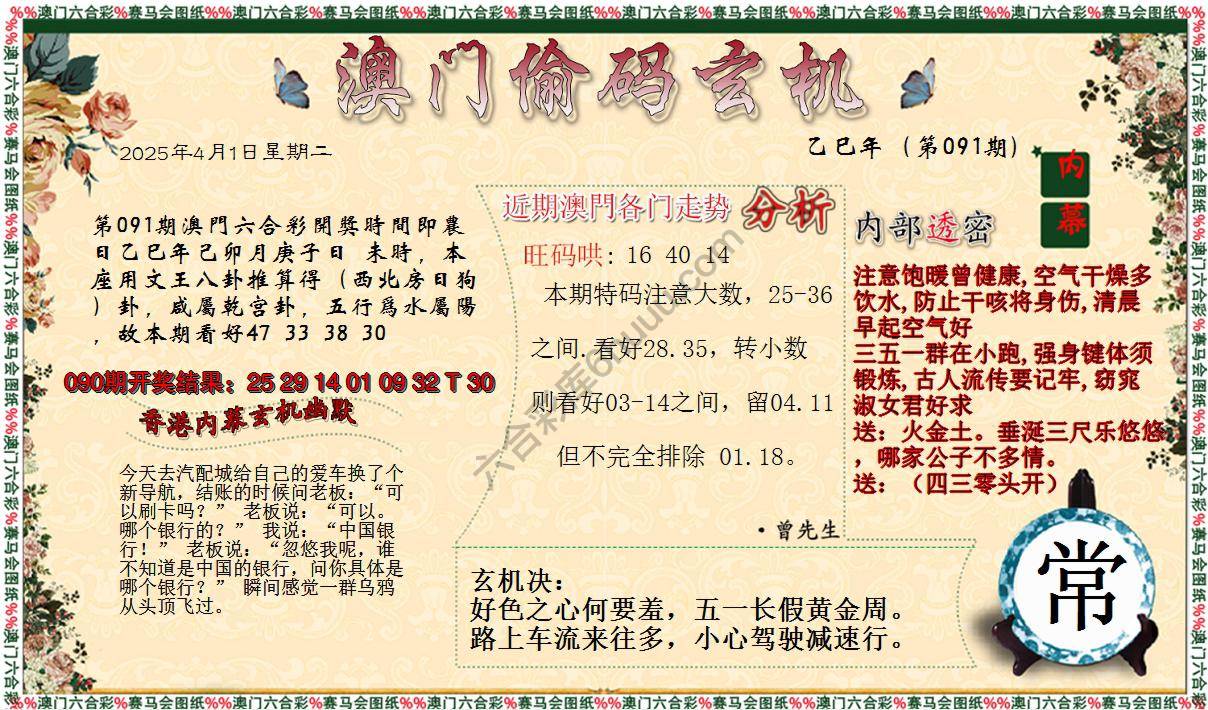 %%澳门六合彩%赛马会图纸%%澳门六合彩%赛马会图纸%%澳门六合彩%赛马会图纸%%澳门六合彩%赛马会图纸%%澳门六合彩%赛马会图纸%%澳门六合彩%赛马会图纸%%
澳门偷码玄机
2025年4月1日星期二
乙巳年（第091期）
内
幕
第091期澳門六合彩開獎時間即農
日乙巳年己卯月庚子日 未時，本
座用文王八卦推算得（西北房日狗
）卦，咸屬乾宫卦，五行爲水屬陽
，故本期看好47 33 38 30
090期开奖结果：25 29 14 01 09 32 T 30
香港内幕玄机幽默
今天去汽配城给自己的爱车换了个
新导航，结账的时候问老板：“可
以刷卡吗？” 老板说：“可以。
哪个银行的？” 我说：“中国银
行！” 老板说：“忽悠我呢，谁
不知道是中国的银行，问你具体是
哪个银行？” 瞬间感觉一群乌鸦
从头顶飞过。
近期澳門各门走势 分析
旺码哄: 16 40 14
本期特码注意大数，25-36
之间.看好28.35，转小数
则看好03-14之间，留04.11
但不完全排除 01.18。
·曾先生
内部透密
注意饱暖曾健康,空气干燥多
饮水,防止干咳将身伤,清晨
早起空气好
三五一群在小跑,强身键体须
锻炼,古人流传要记牢,窈窕
淑女君好求
送：火金土。垂涎三尺乐悠悠
，哪家公子不多情。
送：（四三零头开）
玄机决：
好色之心何要羞，五一长假黄金周。
路上车流来往多，小心驾驶减速行。
常
%%澳门六合彩%赛马会图纸%%澳门六合彩%赛马会图纸%%澳门六合彩%赛马会图纸%%澳门六合彩%赛马会图纸%%澳门六合彩%赛马会图纸%%澳门六合彩%赛马会图纸%%